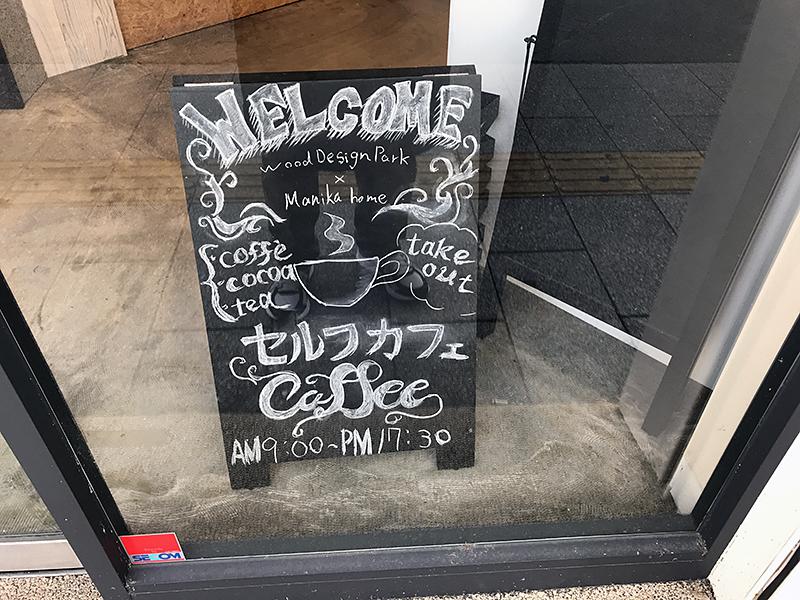 WELCOME
Wood Design Park
×
Manika home
coffè
cocoa
tea
take
out
セルフカフェ
Caffee
AM9:00~PM17:30
SECOM